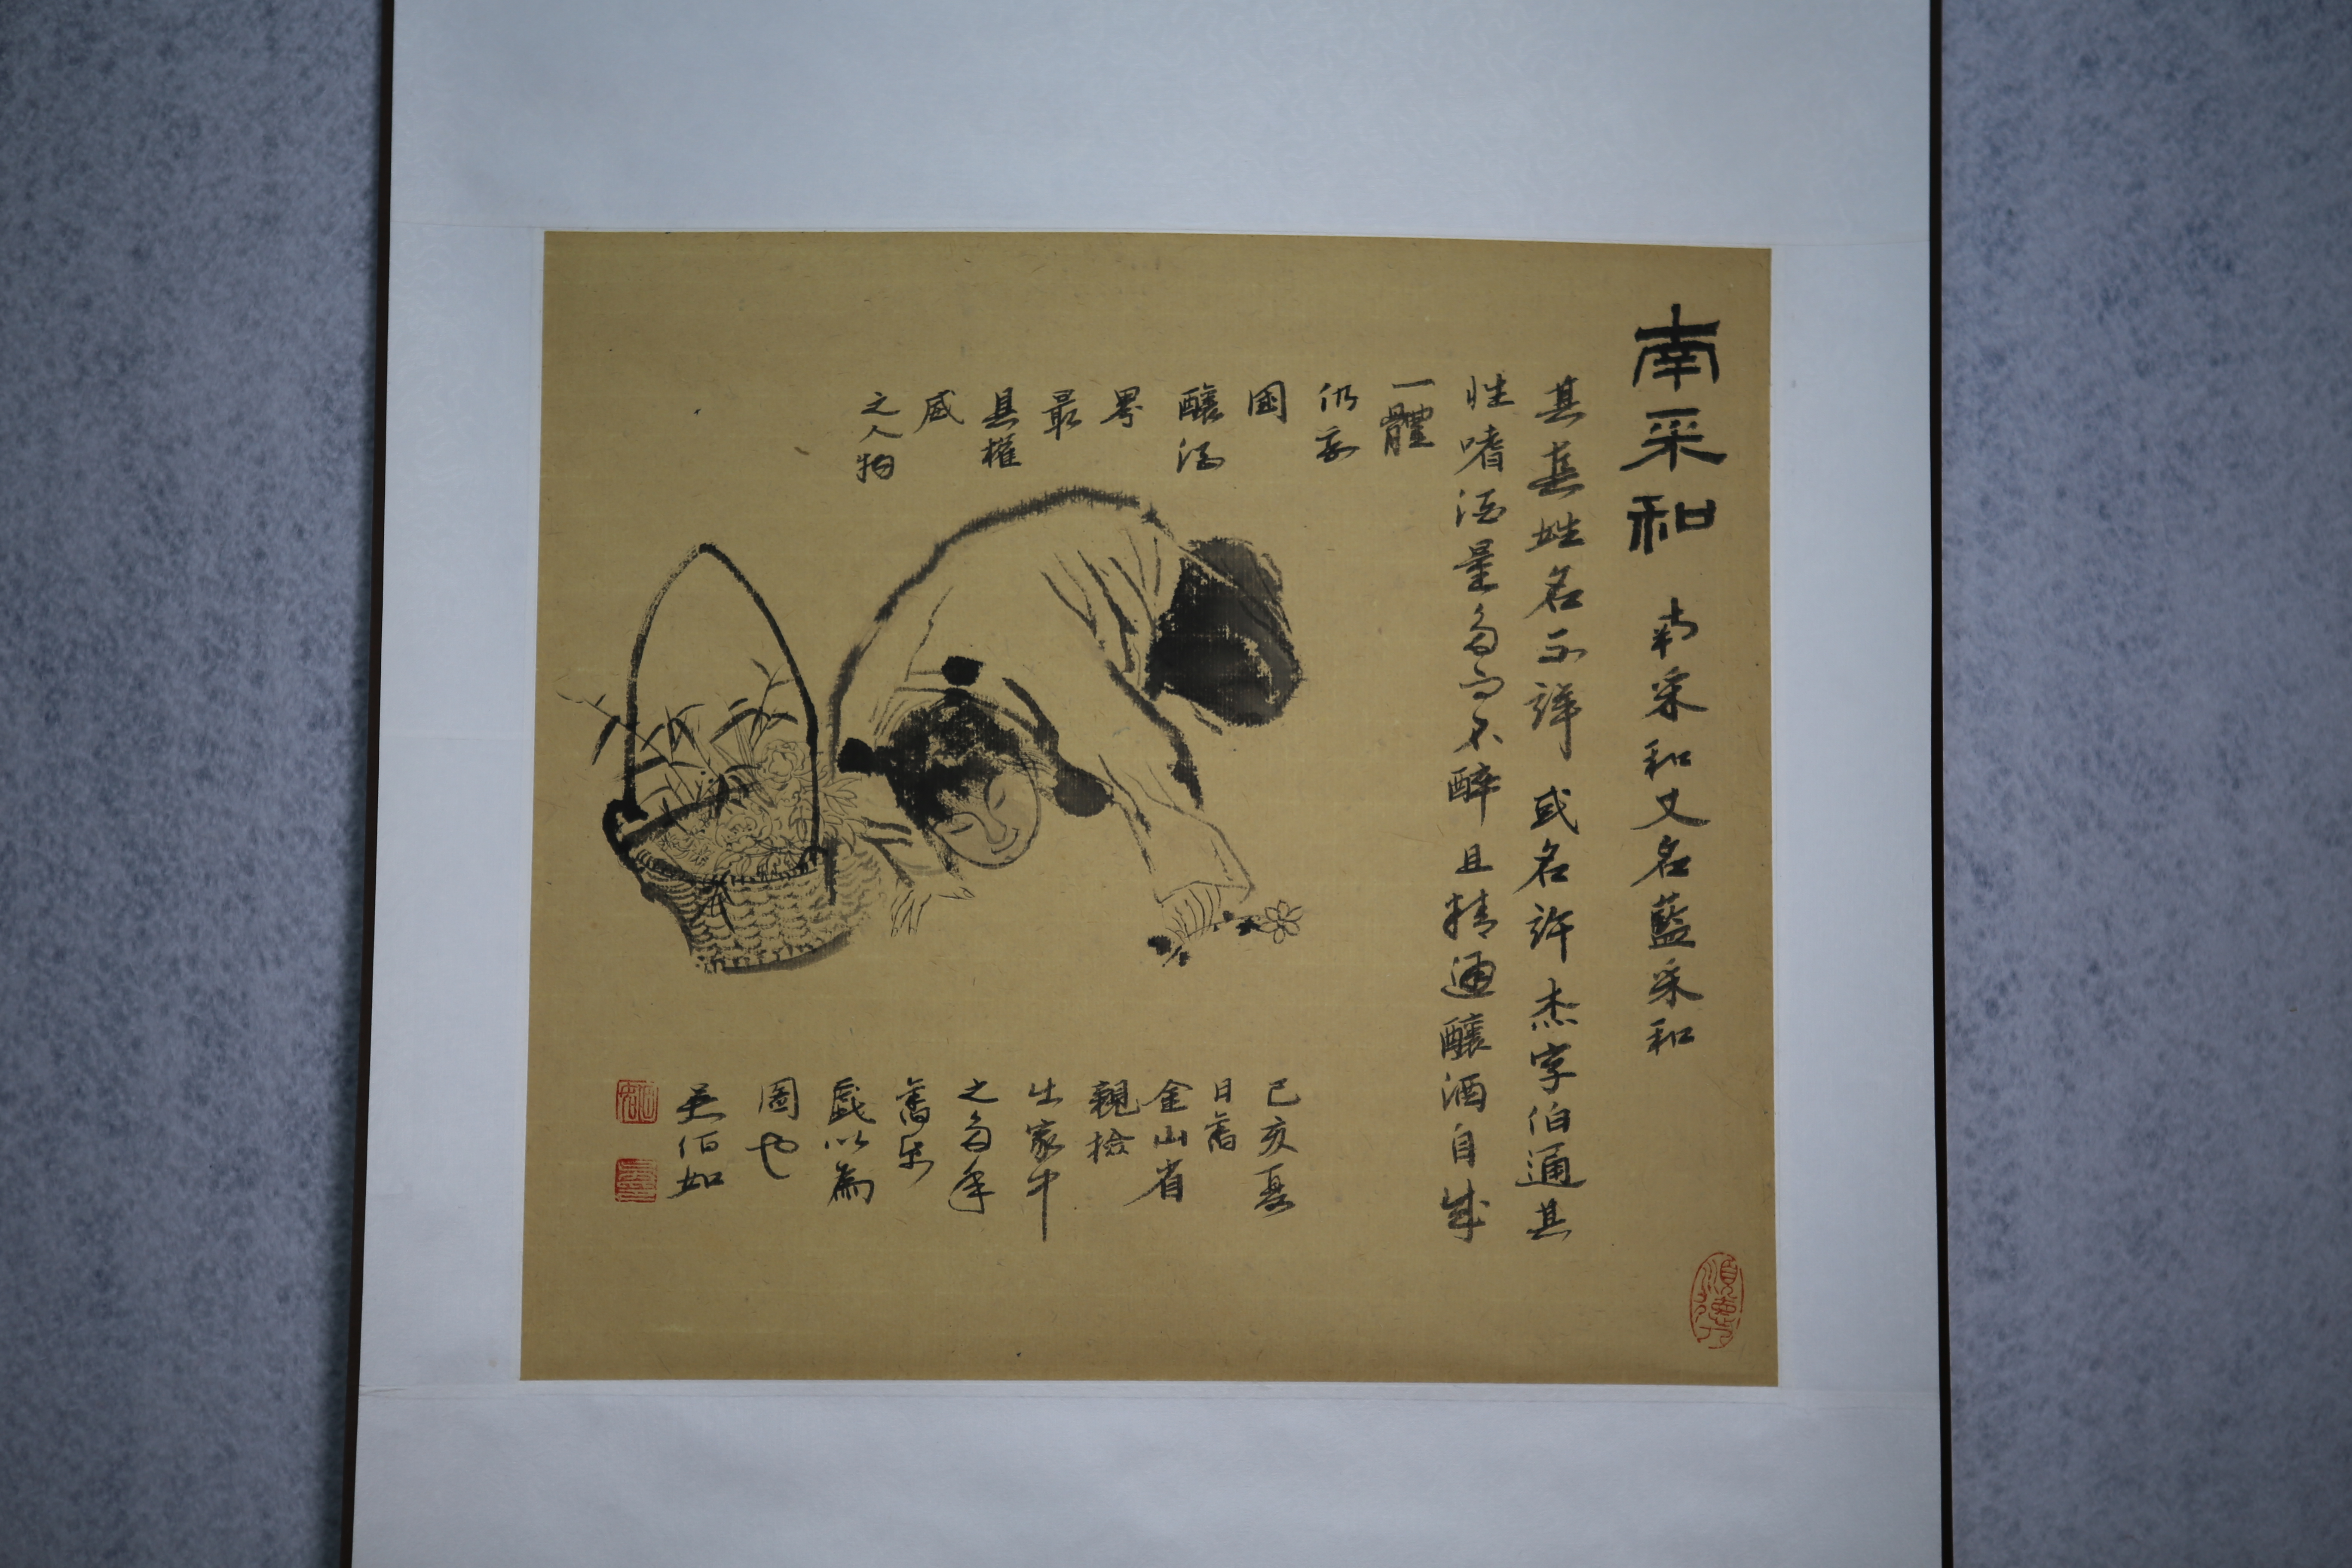 南采和 南采和又名藍采和
其真姓名不詳或名許杰字伯通其
性嗜酒量多而不醉且精通釀酒自成
一體
仍我
國
釀酒
界
最
具權
威
之人物
己亥夏
日舊
金山省
親檢
出家中
之多年
舊宣
戲以為
圖也
吴伯如
順德